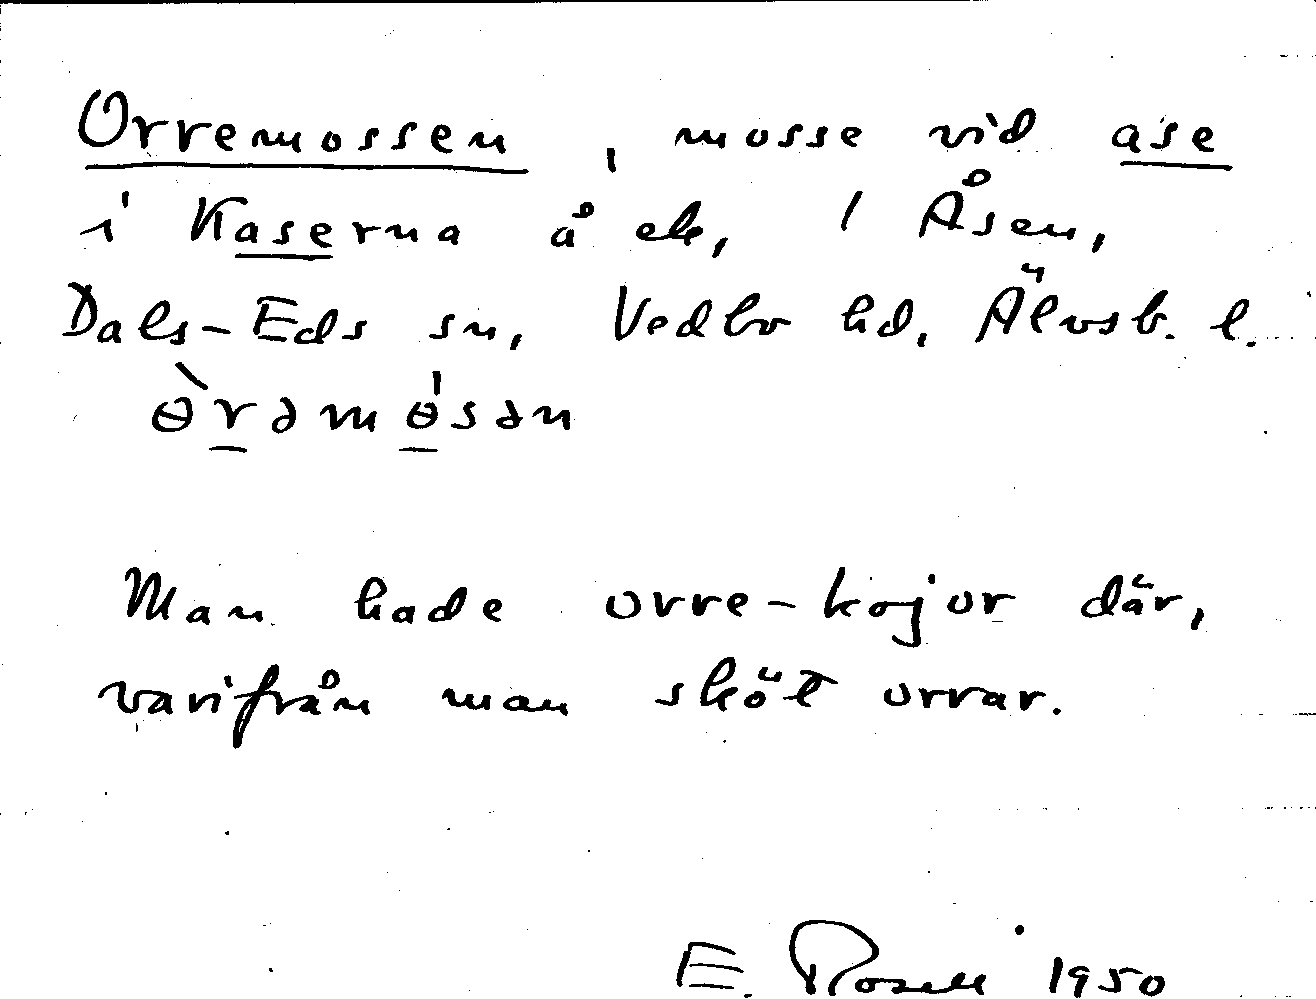 Orremossen, mosse vid ase
i Kaserna å ek, / Åsen,
Dals-Eds sn, Vedbo hd, Älvsb. l.
ɵ̀rəmɵ́sən
Man hade orre-kojor där,
varifrån man sköt orrar.
E. Rosell 1950